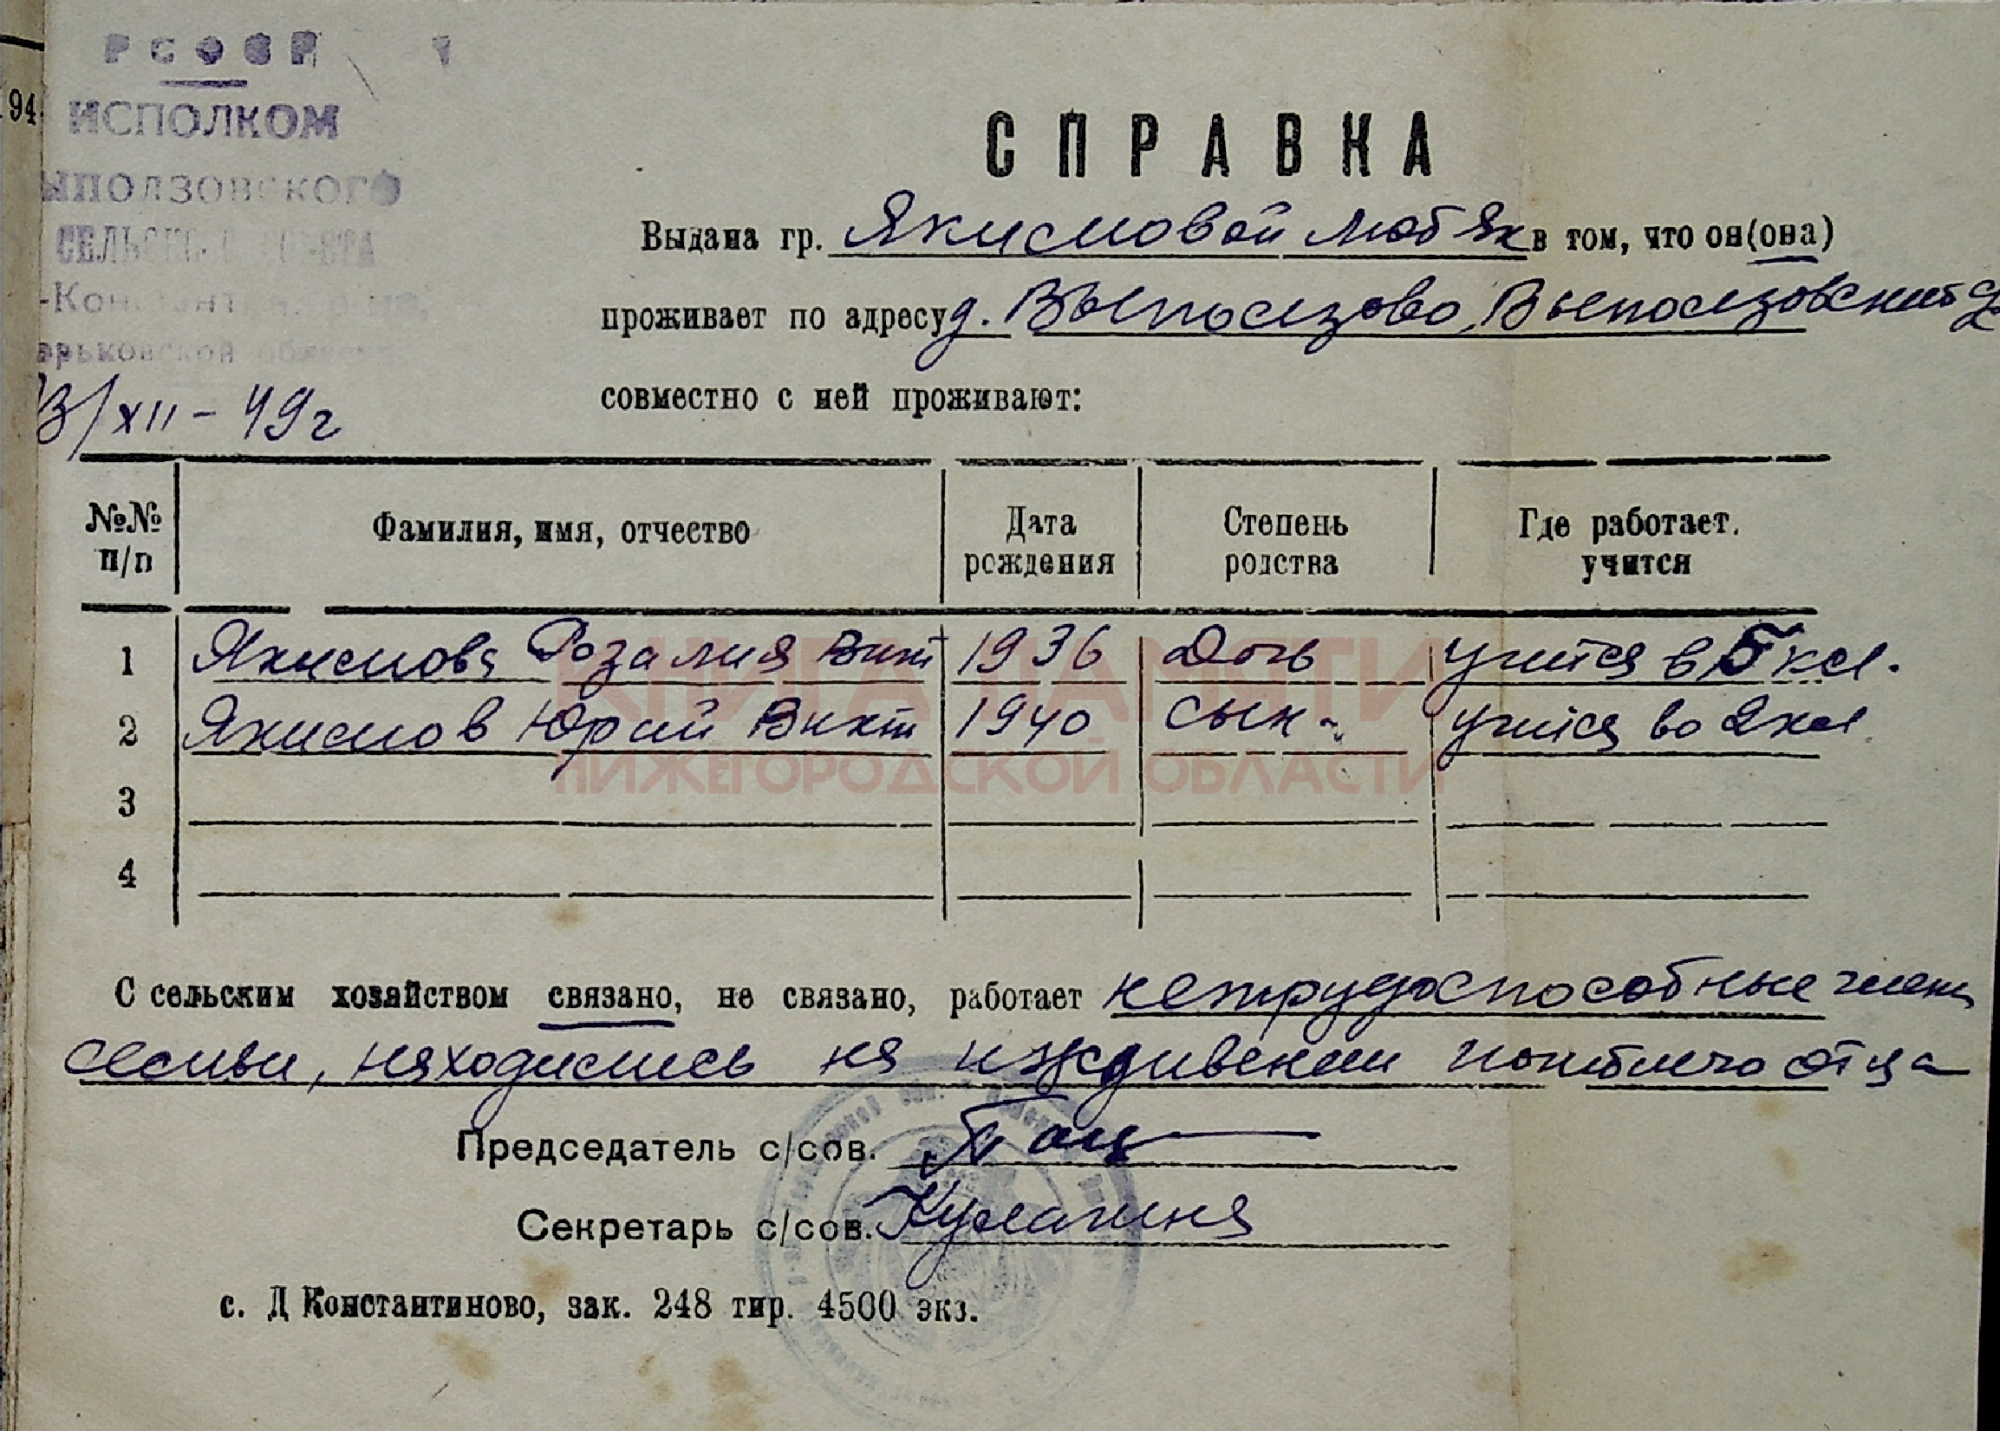 РСФСР
ИСПОЛКОМ
ыползовского
СЕЛЬСКОГО СОВЕТА
-Константин.
орьковской области
3/XII - 49 г
94
СПРАВКА
Выдана гр. Якимовой Люб Як в том, что он(она)
проживает по адресу д. Выползово, Выползовский
совместно с ней проживают:
№№ п/п Фамилия, имя, отчество Дата рождения Степень родства Где работает. учится
1 Якимова Розалия Викт 1936 Дочь учится в 5 кл.
2 Якимов Юрий Викт 1940 сын - учится во 2 кл
3
4
КНИГА ПАМЯТИ
НИЖЕГОРОДСКОЙ ОБЛАСТИ
С сельским хозяйством связано, не связано, работает нетрудоспособные члены
семьи, находились на иждивении погибшего отца
Председатель с/сов.
Секретарь с/сов. Кулагина
с. Д Константиново, зак. 248 тир. 4500 экз.